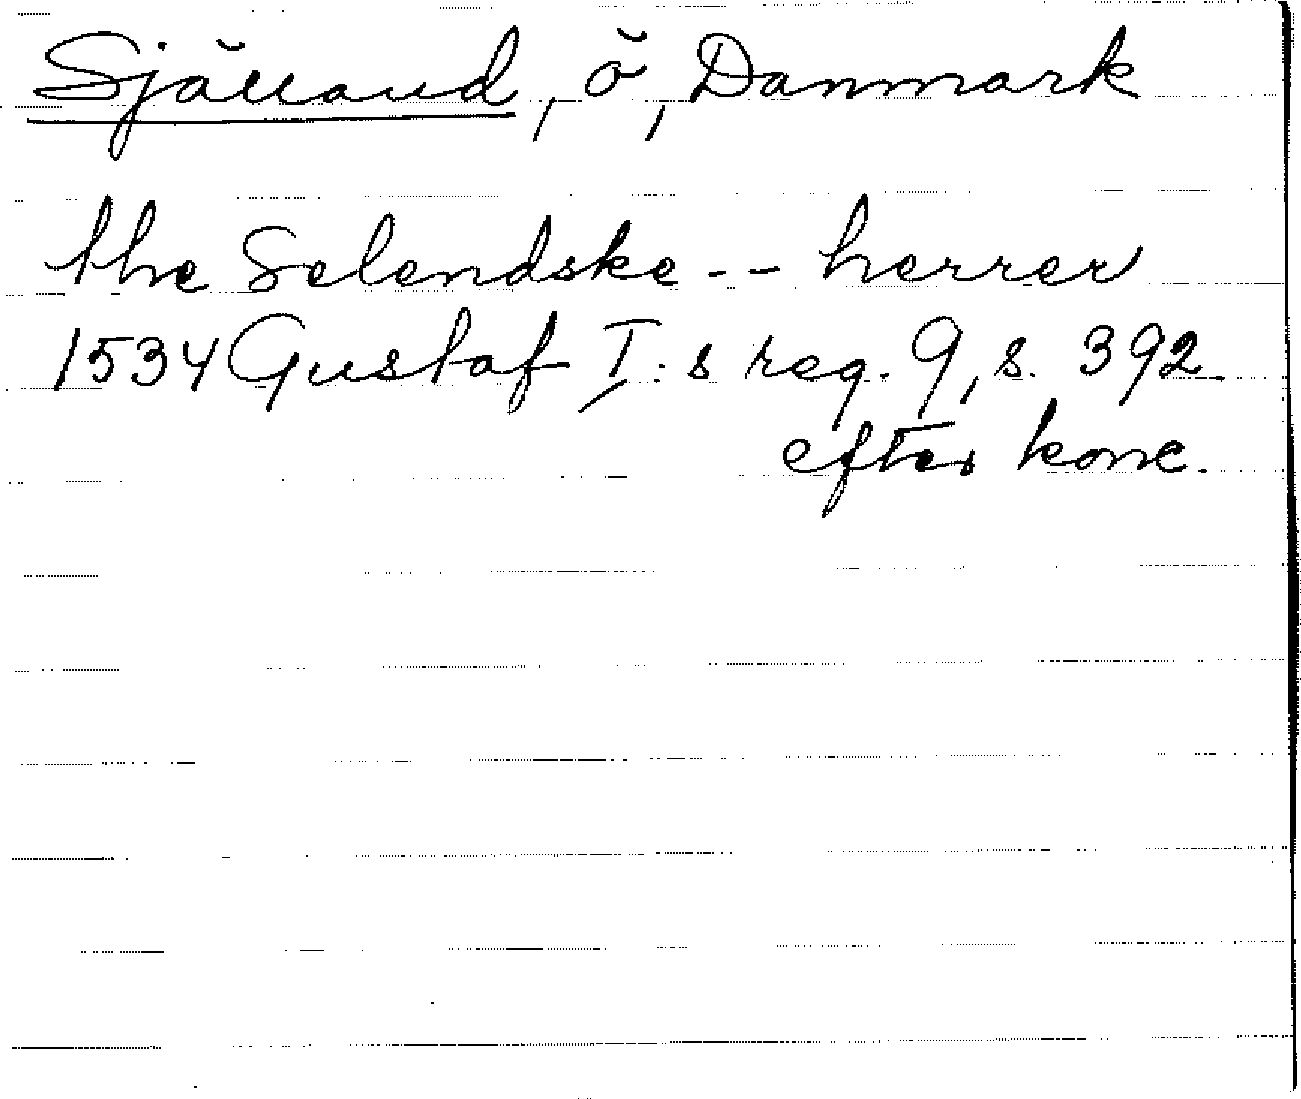 Själland, ö, Danmark
the Selendske -- herrer
1534 Gustaf I:s reg. 9, s. 392
efter konc.